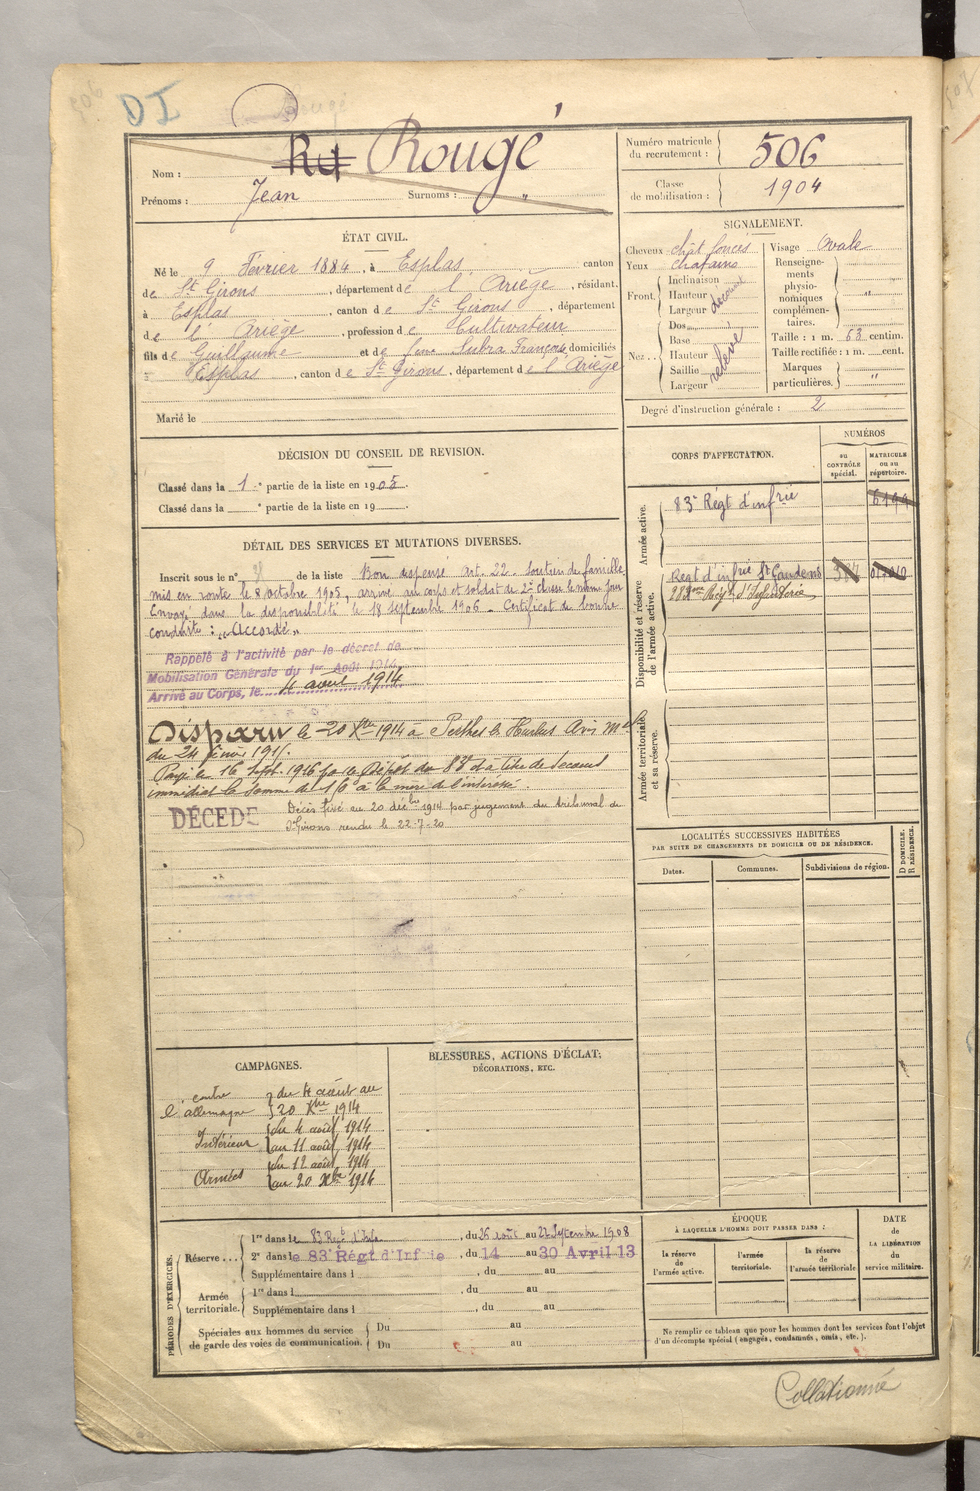 DI
Nom : Rougé
Prénoms : Jean Surnoms : "
Numéro matricule du recrutement : 506
Classe de mobilisation : 1904
ÉTAT CIVIL.
Né le 9 Février 1884, à Esplas, canton
de St Girons, département de l'Ariège, résidant
à Esplas, canton de St Girons, département
de l'Ariège, profession de Cultivateur
fils de Guillaume et de feue Subra Françoise, domiciliés
à Esplas, canton de St Girons, département de l'Ariège
Marié le
SIGNALEMENT.
Cheveux chât. foncés
Yeux chatains
Front. Inclinaison
Hauteur
Largeur
Nez.. Dos
Base
Hauteur relevé
Saillie
Largeur
Visage Ovale
Renseignements physionomiques complémentaires. "
Taille : 1 m. 63 centim.
Taille rectifiée : 1 m. cent.
Marques particulières. "
Degré d'instruction générale : 2
DÉCISION DU CONSEIL DE REVISION.
Classé dans la 1e partie de la liste en 1905.
Classé dans la e partie de la liste en 19
CORPS D'AFFECTATION.
NUMÉROS
au CONTRÔLE spécial.
MATRICULE ou au répertoire.
Armée active.
83e Régt d'infrie
Disponibilité et réserve de l'armée active.
Régt d'infrie St Gaudens
283ème Régt d'Infanterie
Armée territoriale et sa réserve.
DÉTAIL DES SERVICES ET MUTATIONS DIVERSES.
Inscrit sous le n° de la liste Bon dispensé Art. 22. Soutien de famille
mis en route le 8 octobre 1905, arrivé au corps et soldat de 2e classe le même jour
Envoyé dans la disponibilité le 18 Septembre 1906. Certificat de bonne
conduite : "Accordé"
Rappelé à l'activité par le décret de
Mobilisation Générale du 1er Août 1914
Arrivé au Corps, le 4 août 1914
Disparu le 20 Xbre 1914 à Perthes les Hurlus Avis Mel
du 24 1915.
Payé le 16 Sept. 1916 par le Dépôt du 83e à titre de secours
immédiat la somme de à la mère de l'intéressé.
DÉCÉDÉ
Décès fixé au 20 décbre 1914 par jugement du tribunal de
St Girons rendu le 22-7-20
LOCALITÉS SUCCESSIVES HABITÉES
PAR SUITE DE CHANGEMENTS DE DOMICILE OU DE RÉSIDENCE.
Dates. Communes. Subdivisions de région.
D DOMICILE. R RÉSIDENCE.
CAMPAGNES.
contre l'allemagne du 4 août au
20 Xbre 1914
Intérieur du 4 août 1914
au 11 août 1914
Armées du 12 août 1914
au 20 Xbre 1914
BLESSURES, ACTIONS D'ÉCLAT,
DÉCORATIONS, ETC.
PÉRIODES D'EXERCICES.
Réserve...
1re dans le 83 Régt d'Infie, du 26 août au 22 Septembre 1908
2e dans le 83e Régt d'Infrie, du 14 au 30 Avril 13
Supplémentaire dans l , du au
Armée territoriale.
1re dans l , du au
Supplémentaire dans l , du au
Spéciales aux hommes du service de garde des voies de communication.
Du au
Du au
ÉPOQUE
À LAQUELLE L'HOMME DOIT PASSER DANS :
la réserve de l'armée active.
l'armée territoriale.
la réserve de l'armée territoriale
DATE
de
LA LIBÉRATION
du
service militaire.
Ne remplir ce tableau que pour les hommes dont les services font l'objet
d'un décompte spécial (engagés, condamnés, omis, etc.).
Collationné